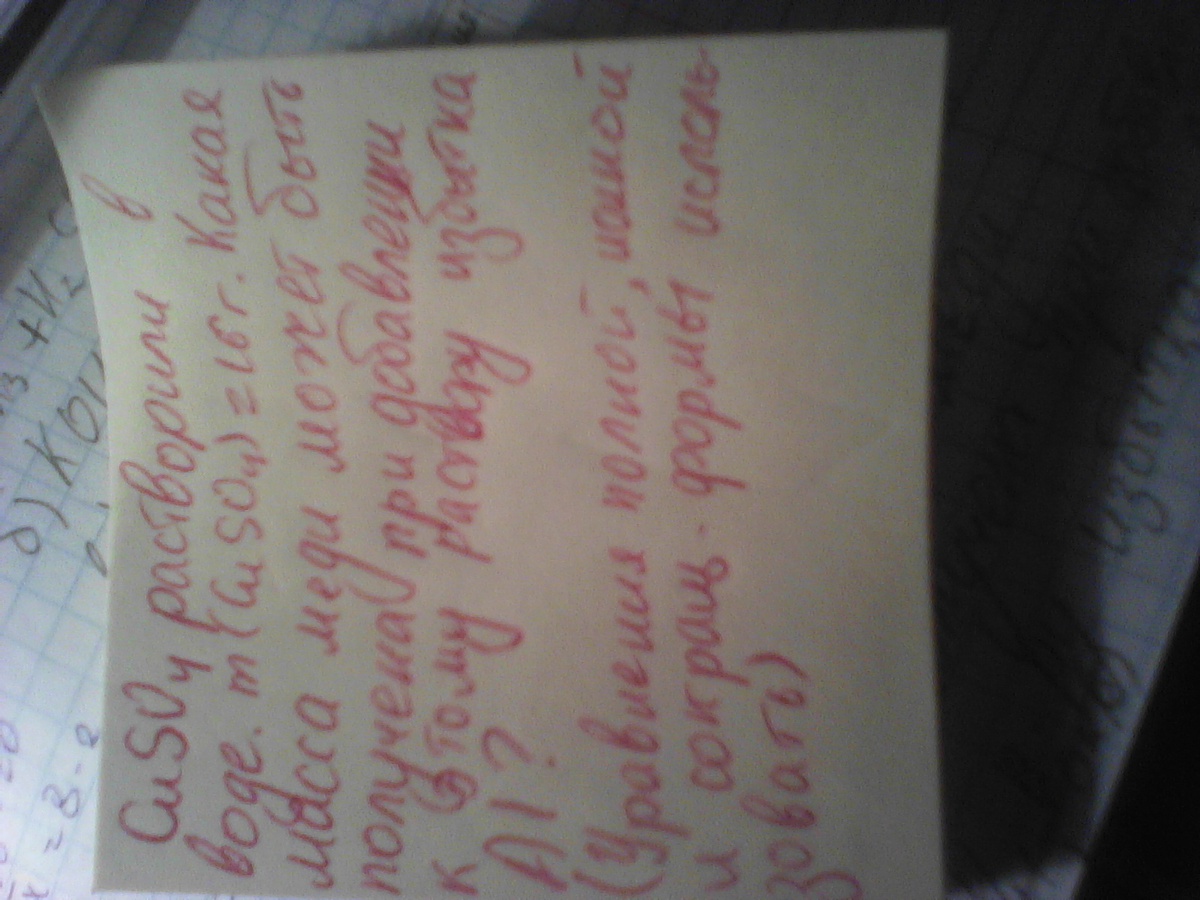 CuSO₄ растворили в
воде. m(CuSO₄) = 16 г. Какая
масса меди может быть
получена при добавлении
к этому раствору избытка
Al?
(Уравнения полной, ионной
и сокращ. формы исполь-
зовать)